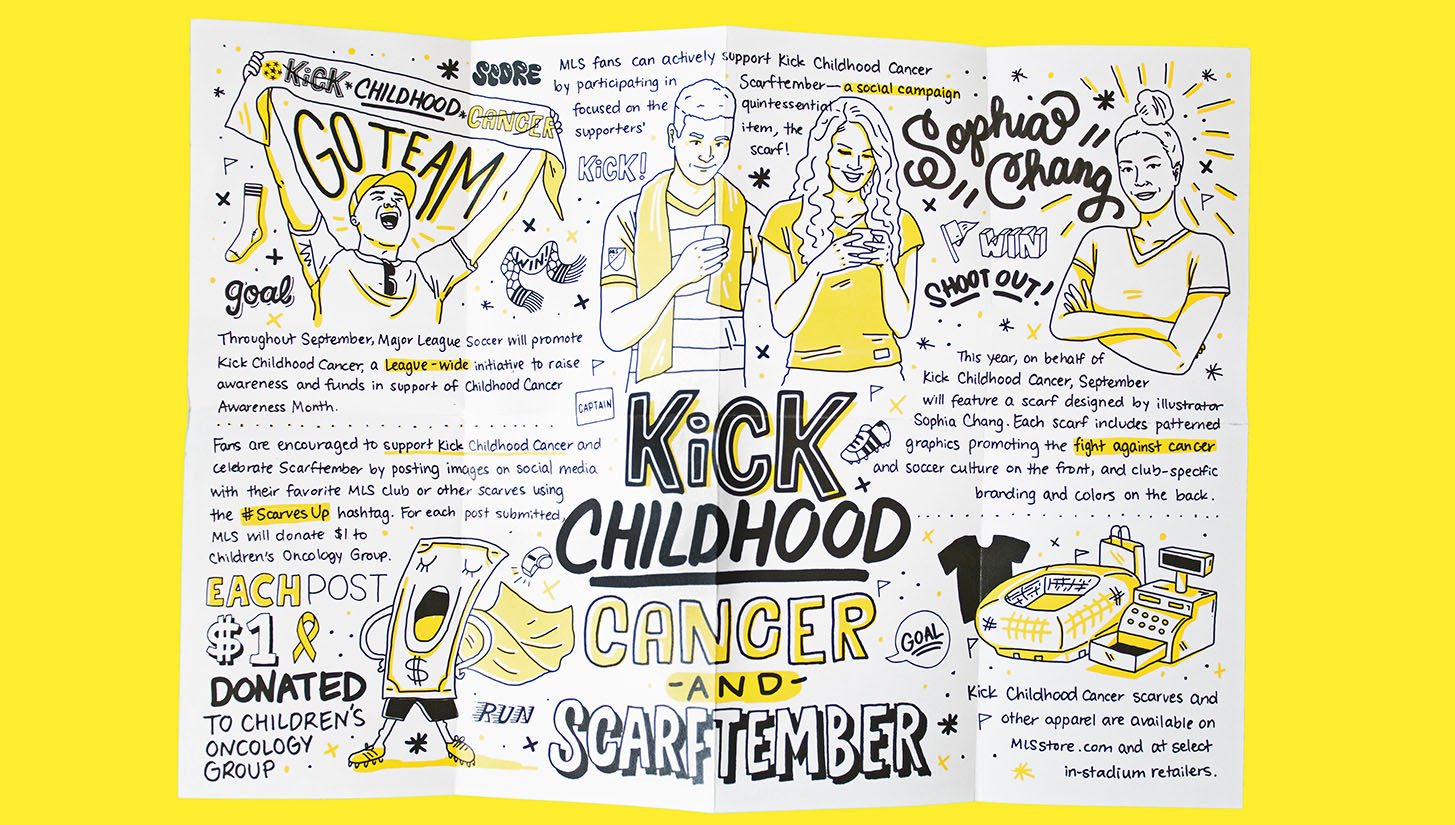 KiCK * CHILDHOOD * CANCER
GO TEAM
goal
SCORE
WIN!
Throughout September, Major League Soccer will promote
Kick Childhood Cancer, a League-wide initiative to raise
awareness and funds in support of Childhood Cancer
Awareness Month.
Fans are encouraged to support Kick Childhood Cancer and
celebrate Scarftember by posting images on social media
with their favorite MLS club or other scarves using
the #ScarvesUp hashtag. For each post submitted,
MLS will donate $1 to
Children's Oncology Group.
EACH POST
$1
DONATED
TO CHILDREN'S
ONCOLOGY
GROUP
$
RUN
MLS fans can actively support Kick Childhood Cancer
by participating in Scarftember— a social campaign
focused on the quintessential
supporters' item, the
scarf!
KiCK!
MLS
CAPTAIN
KiCK
CHILDHOOD
CANCER
-AND-
SCARFTEMBER
GOAL
Sophia
Chang
WIN
SHOOT OUT!
This year, on behalf of
Kick Childhood Cancer, September
will feature a scarf designed by illustrator
Sophia Chang. Each scarf includes patterned
graphics promoting the fight against cancer
and soccer culture on the front, and club-specific
branding and colors on the back.
Kick Childhood Cancer scarves and
other apparel are available on
MLSstore.com and at select
in-stadium retailers.